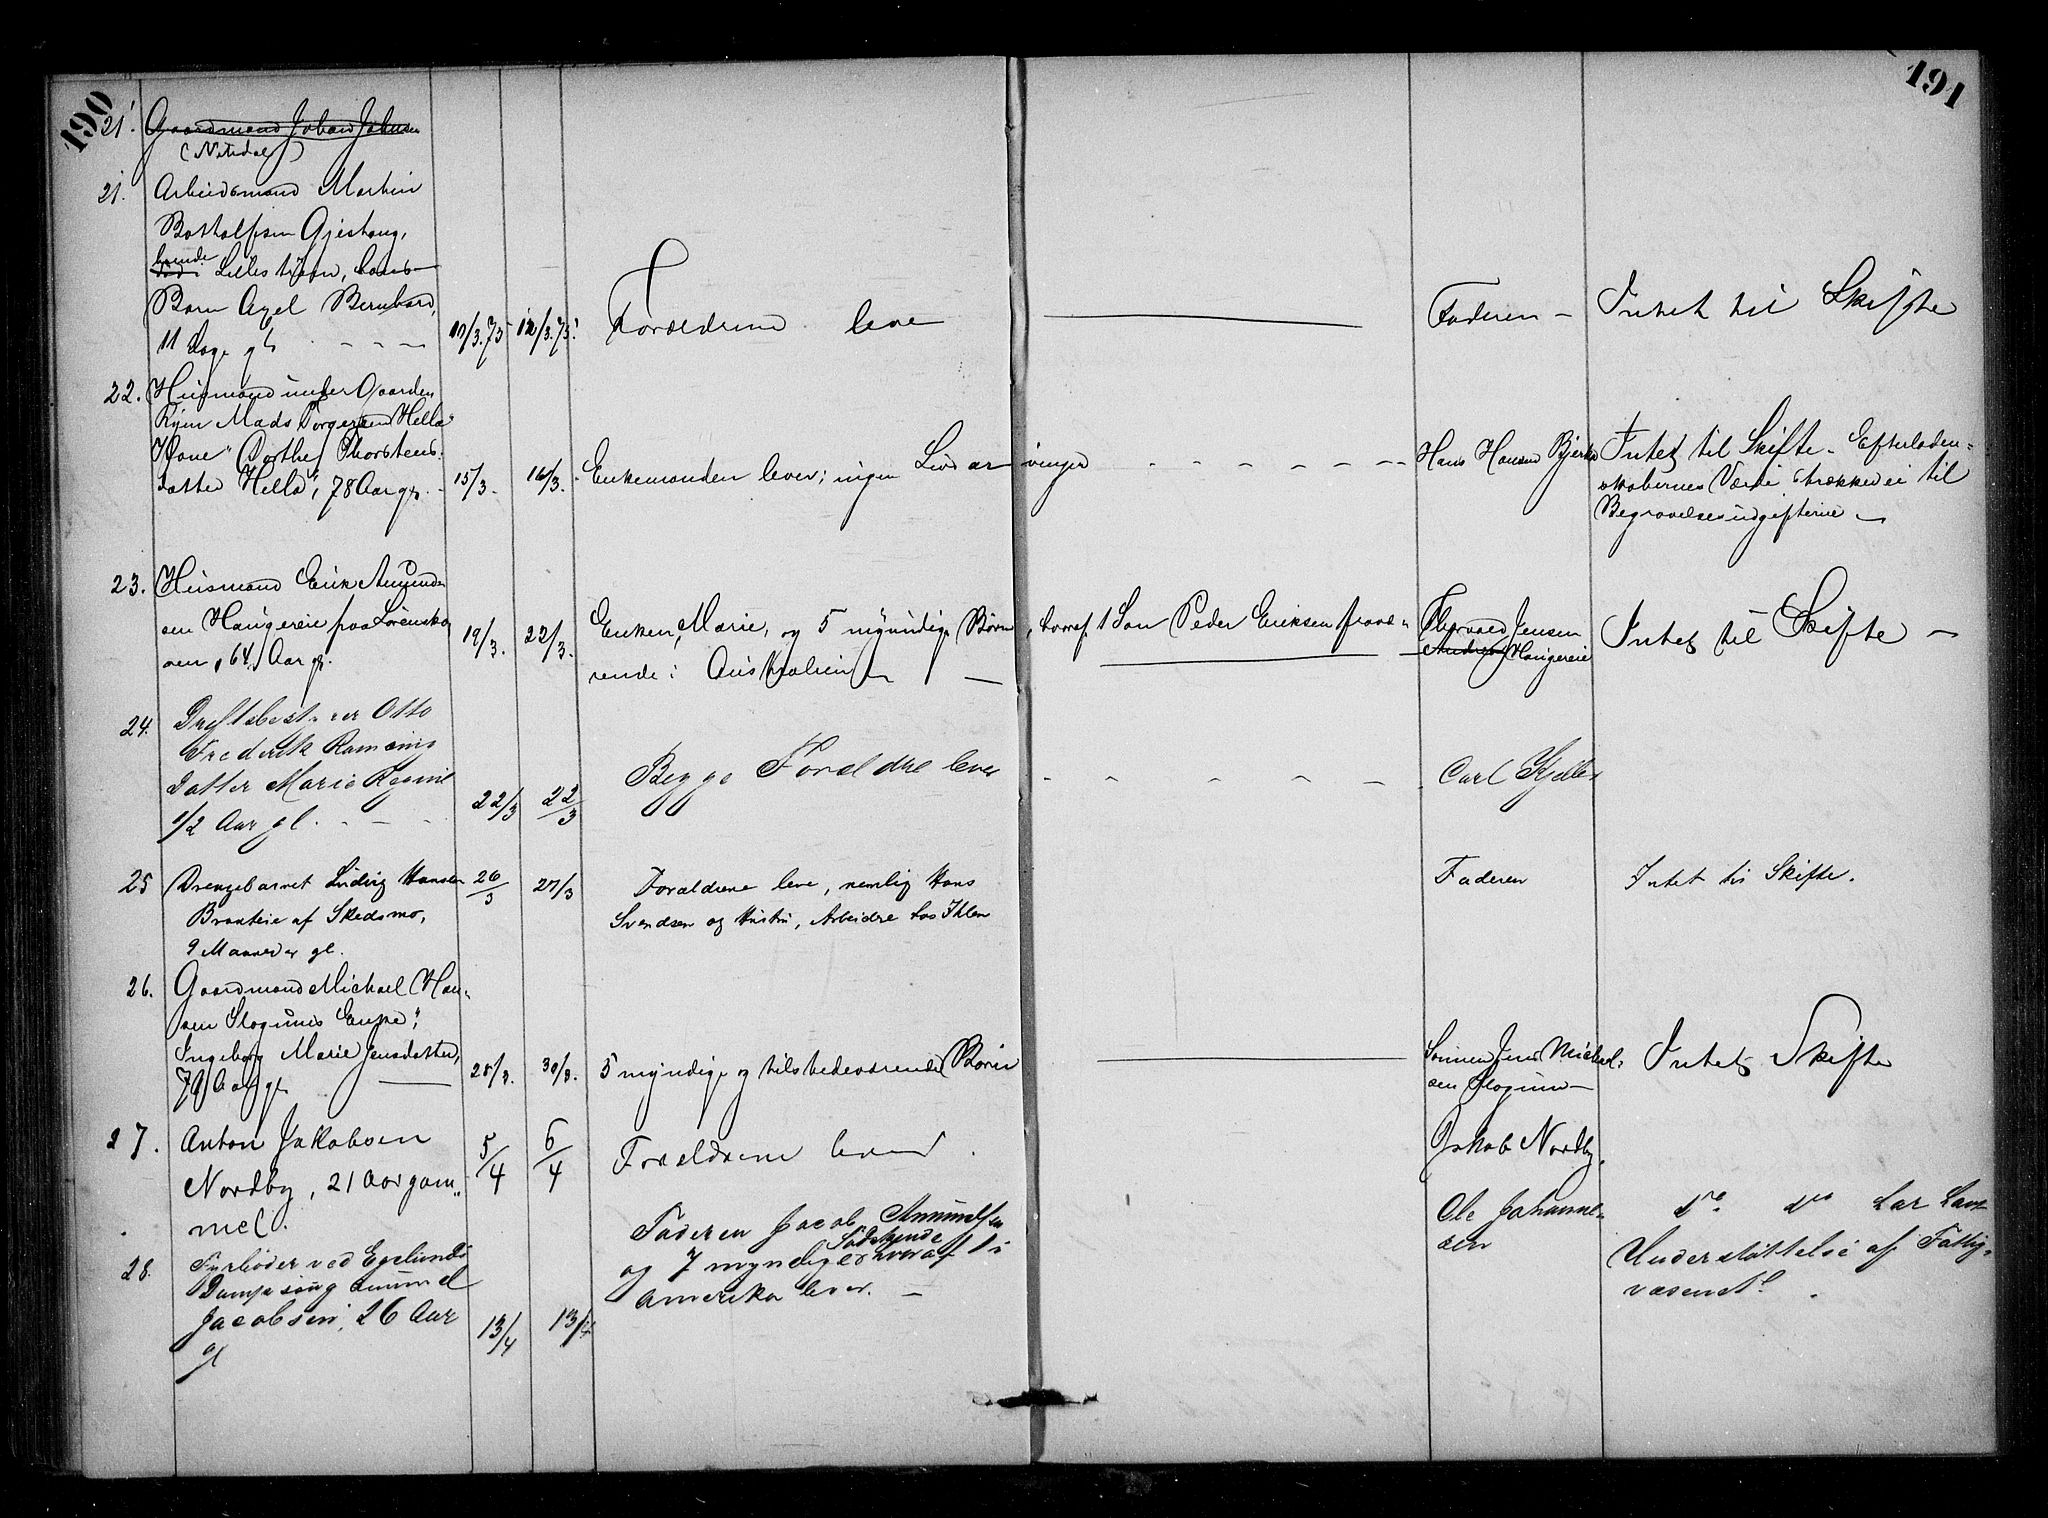 190
191
21. Gaardmand Johan Johnsen
(Nitedal)
21. Arbeidsmand Martin
Bottolfsen Gjeshaug,
boende
i Lillestrøm, hans
Barn Axel Bernhard,
11 Dage gl. 10/3.75 12/3.75. Forældrene leve Faderen – Intet til Skifte
22. Husmand under Gaarden
Ryen Mads Torgersen Hella's
Kone Dorthe Thorstens-
datter Hella, 78 Aar gl. 15/3. 16/3. Enkemanden lever; ingen Livsarvinger Hans Hansen Intet til Skifte. Efterladen-
skabernes Værdi strækker ei til
Begravelsesudgifterne –
23. Husmand Erik Amund-
sen Haugereie fra Lørensko-
ven, 64 Aar gl. 19/3. 22/3. Enken, Marie, og 5 myndige Børn, hvoraf 1 Søn Peder Eriksen fravæ-
rende i Australien – Jensen
Haugereie Intet til Skifte –
24. Driftsbestyrer Otto
Frederik
Datter Marie
1/2 Aar gl. 22/3 22/3 Begge Forældre lever Carl Kjelle
25 Drengebarnet Ludvig Hansen
Braateie af Skedsmo,
9 Maaneder gl. 26/3 27/3 Forældrene leve, nemlig Hans
Svendsen og Hustru, Arbeidre hos Ihlen Faderen Intet til Skifte.
26. Gaardmand Michael Han-
sen Slogums Enke,
Ingeborg Marie Jensdatter,
Aar gl. 30/3. 5 myndige og tilstedeværende Børn Sønnen Jens Michael-
sen Slogum – Intet Skifte
27. Anton Jakobsen
Nordby, 21 Aar gam-
mel. 5/4 6/4 Forældrene lever. Jakob Nordby.
28. Fyrbøder ved Egelunds
Dampsaug Amund
Jacobsen, 26 Aar
gl 13/4 13/4 Faderen Jacob Amundsen
Sødskende
og 7 myndige hvoraf 1 i
Amerika lever. – Ole Johanne-
sen do do har
Understøttelse af Fattig-
væsenet.